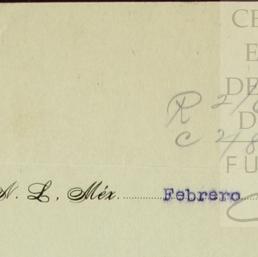 CE
E
DE
D
FU
R 2/
C 2/8
N. L., Méx. Febrero